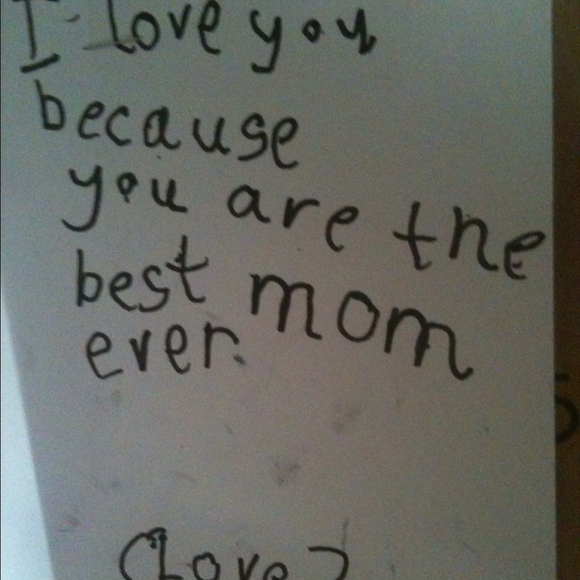 I love you
because
you are the
best mom
ever.
(Love)